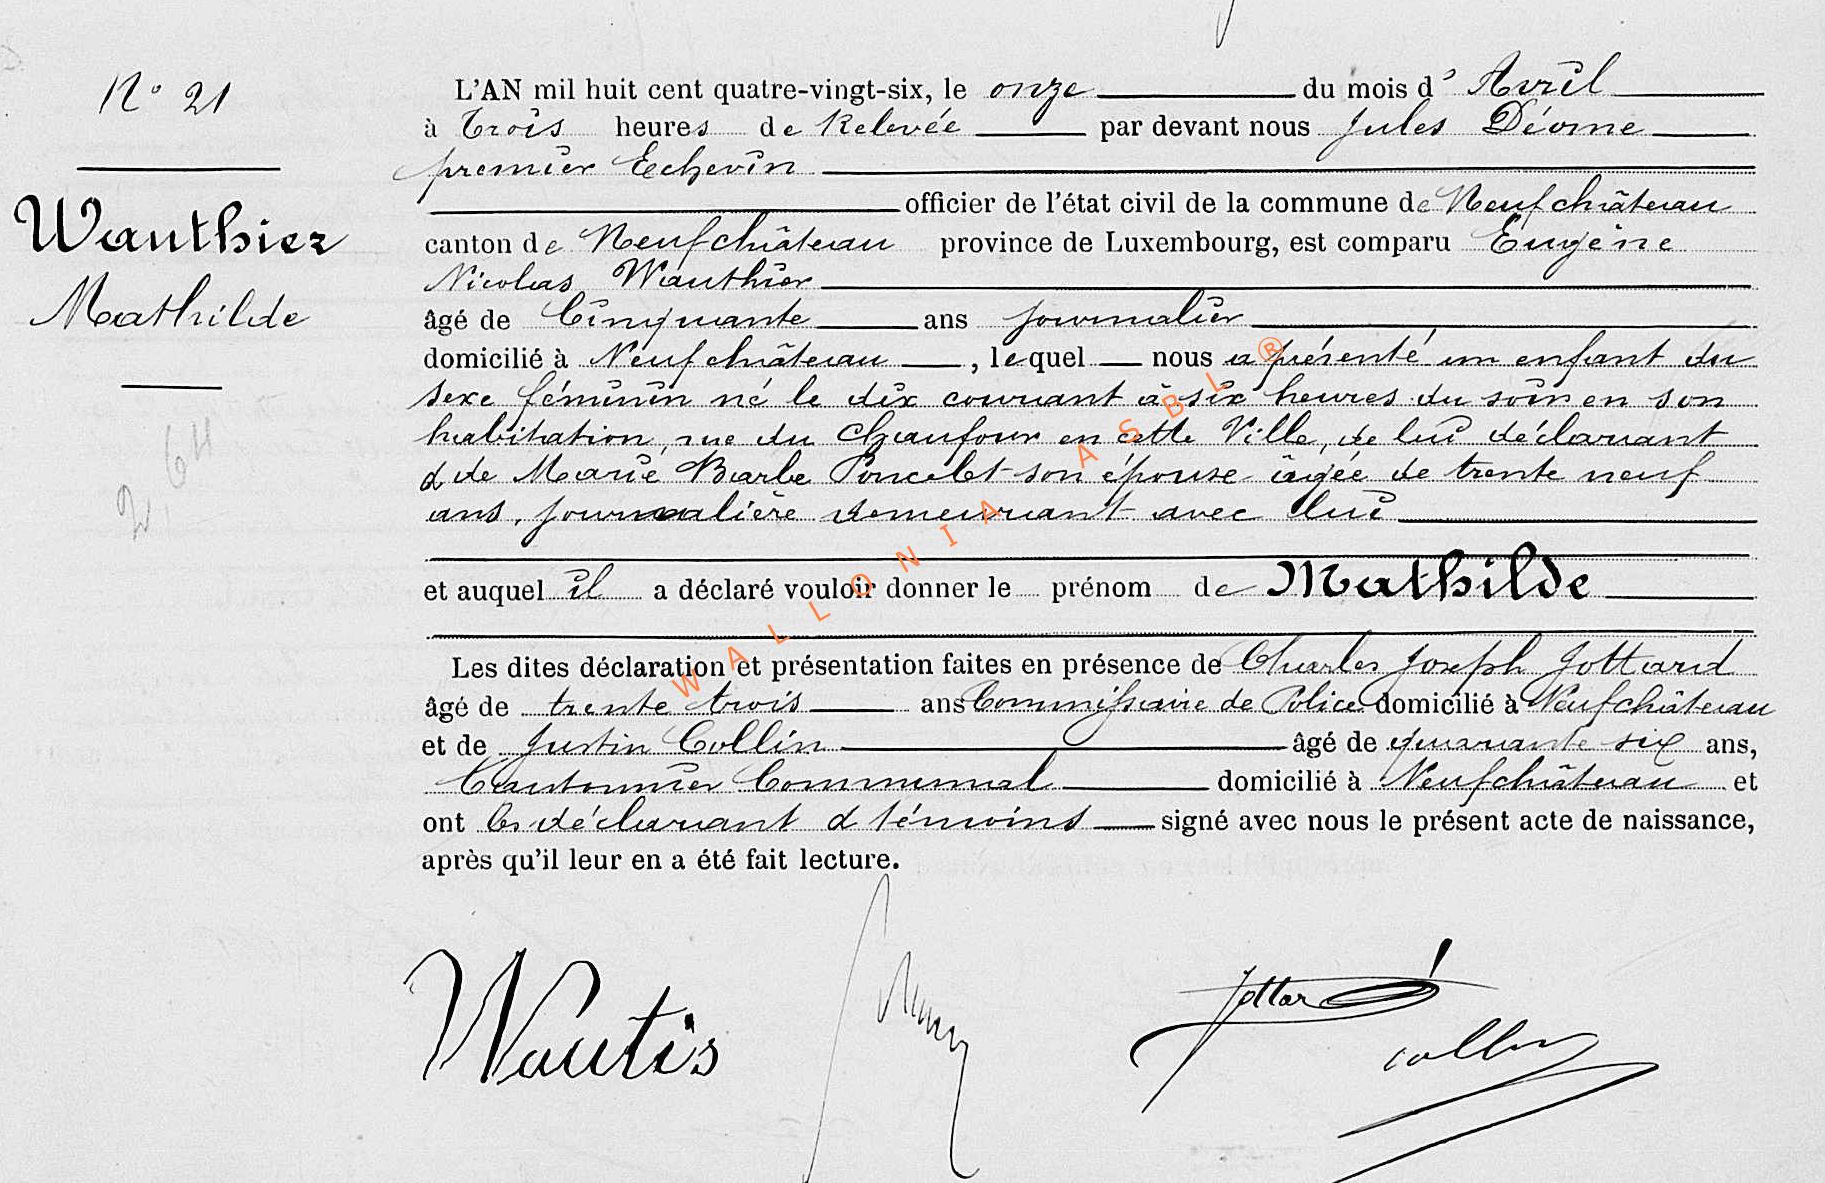 N° 21
Wauthier
Mathilde
2, 64
L'AN mil huit cent quatre-vingt-six, le onze du mois d' Avril
à Trois heures de Relevée par devant nous Jules Déome
premier Echevin
officier de l'état civil de la commune de Neufchâteau
canton de Neufchâteau province de Luxembourg, est comparu Eugène
Nicolas Wauthier
âgé de Cinquante ans journalier
domicilié à Neufchâteau, lequel nous a présenté un enfant du
sexe féminin né le dix courant à six heures du soir en son
habitation, rue du Chaufour en cette Ville, de lui déclarant
& de Marie Barbe Poncelet son épouse âgée de trente neuf
ans, journalière demeurant avec lui
et auquel il a déclaré vouloir donner le prénom de Mathilde
Les dites déclaration et présentation faites en présence de Charles Joseph Jottard
âgé de trente trois ans Commissaire de Police domicilié à Neufchâteau
et de Justin Collin âgé de quarante six ans,
Cantonnier Communal domicilié à Neufchâteau et
ont les déclarant & témoins signé avec nous le présent acte de naissance,
après qu'il leur en a été fait lecture.
Wautis
Jottard
Collin
WALLONIA ASBL ®